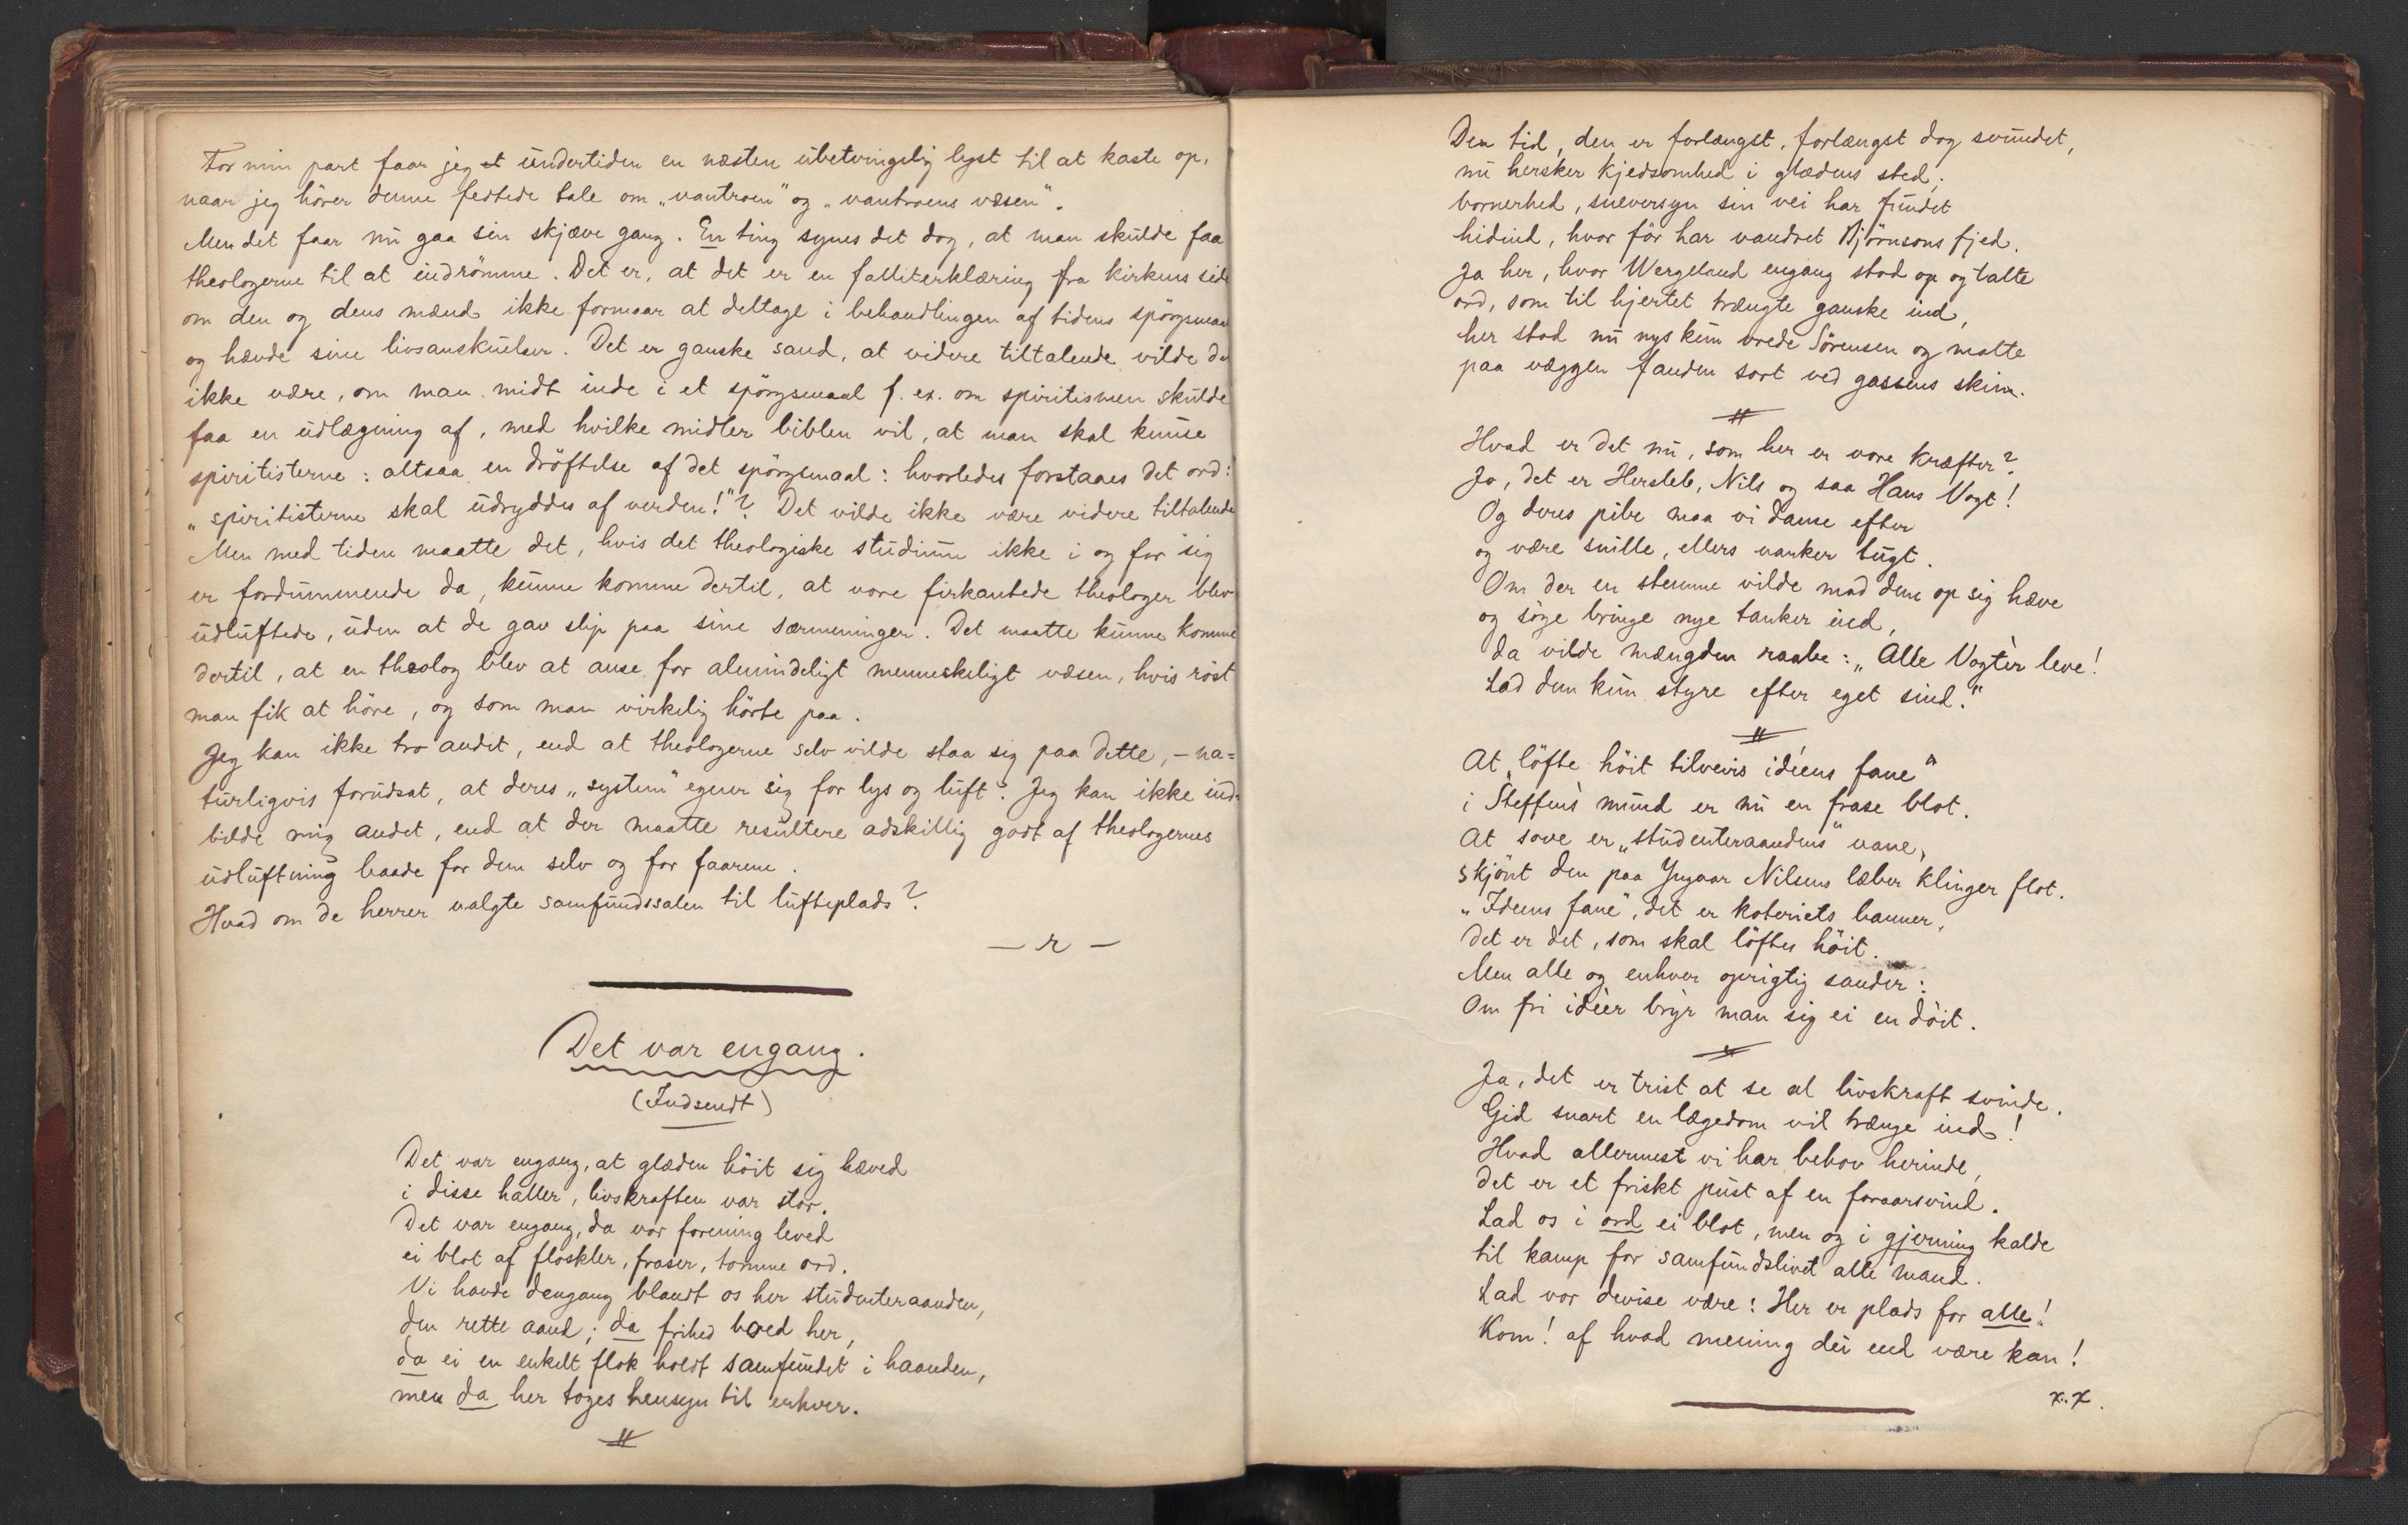 For min part faar jeg et undertiden en næsten ubetvingelig lyst til at kaste op,
naar jeg hörer denne fedtede tale om „vantroen" og „vantroens væsen".
Men det faar nu gaa sin skjæve gang. En ting synes det dog, at man skulde faa
theologerne til at indrömme. Det er, at det er en falliterklæring fra kirkens side
om den og dens mænd ikke formaar at deltage i behandlingen af tidens spörgsmaal
og hævde sine livsanskuelser. Det er ganske sand, at videre tiltalende vilde de
ikke være, om man midt inde i et spörgsmaal f. ex. om spiritismen skulde
faa en udlægning af, med hvilke midler biblen vil, at man skal kunse
spiritisterne: altsaa en dröftelse af det spörgsmaal: hvorledes forstaaes det ord:
„spiritisterne skal udryddes af verden!"? Det vilde ikke være videre tiltalende
Men med tiden maatte det, hvis det theologiske studium ikke i og for sig
er fordummende da, kunne komme dertil, at vore firkantede theologer blev
udluftede, uden at de gav slip paa sine særmeninger. Det maatte kunne komme
dertil, at en theolog blev at anse for almindeligt menneskeligt væsen, hvis röst
man fik at höre, og som man virkelig hörte paa.
Jeg kan ikke tro andet, end at theologerne selv vilde staa sig paa dette, – na=
turligvis forudsat, at deres „system" egner sig for lys og luft. Jeg kan ikke ind-
bilde mig andet, end at der maatte resultere adskillig godt af theologernes
udluftning baade for dem selv og for faarene.
Hvad om de herrer valgte samfundssalen til lufteplads?
– r –
Det var engang.
(Indsendt)
Det var engang, at glæden höit sig hæved
i disse haller, livskraften var stor.
Det var engang, da vor forening leved
ei blot af floskler, fraser, tomme ord.
Vi havde dengang blandt os her studenteraanden,
den rette aand; da frihed boed her,
da ei en enkelt flok holdt samfundet i haanden,
men da her toges hensyn til enhver.
Den tid, den er forlængst, forlængst dog svundet,
nu hersker kjedsomhed i glædens sted;
bornerhed, sneversyn sin vei har fundet
hidind, hvor för har vandret Björnsons fjed.
Ja her, hvor Wergeland engang stod op og talte
ord, som til hjertet trængte ganske ind,
her stod nu nys kun vrede Sörensen og malte
paa væggen fanden sort ved gassens skin.
Hvad er det nu, som her er vore kræfter?
Jo, det er Hersleb, Nils og saa Hans Vogt!
Og deres pibe maa vi danse efter
og være snille, ellers vanker tugt.
Om der en stemme vilde mod dem op sig hæve
og söge bringe nye tanker ind,
da vilde mængden raabe: „Alle Vogter leve!
Lad dem kun styre efter eget sind!"
At „löfte höit tilveirs idéens fane"
i Steffens mund er nu en frase blot.
At sove er „studenteraandens" vane,
skjönt den paa Yngvar Nilsens læber klinger flot.
„Ideens fane", det er koteriets banner,
det er det, som skal löftes höit.
Men alle og enhver oprigtig sander:
Om fri idéer bryr man sig ei en döit.
Ja, det er trist at se al livskraft svinde.
Gid snart en lægedom vil trænge ind!
Hvad allermest vi har behov herinde,
det er et friskt pust af en foraarsvind.
Lad os i ord ei blot, men og i gjerning kalde
til kamp for samfundslivet alle mand.
Lad vor devise være: Her er plads for alle!
Kom! af hvad mening dei end være kan!
x.x.